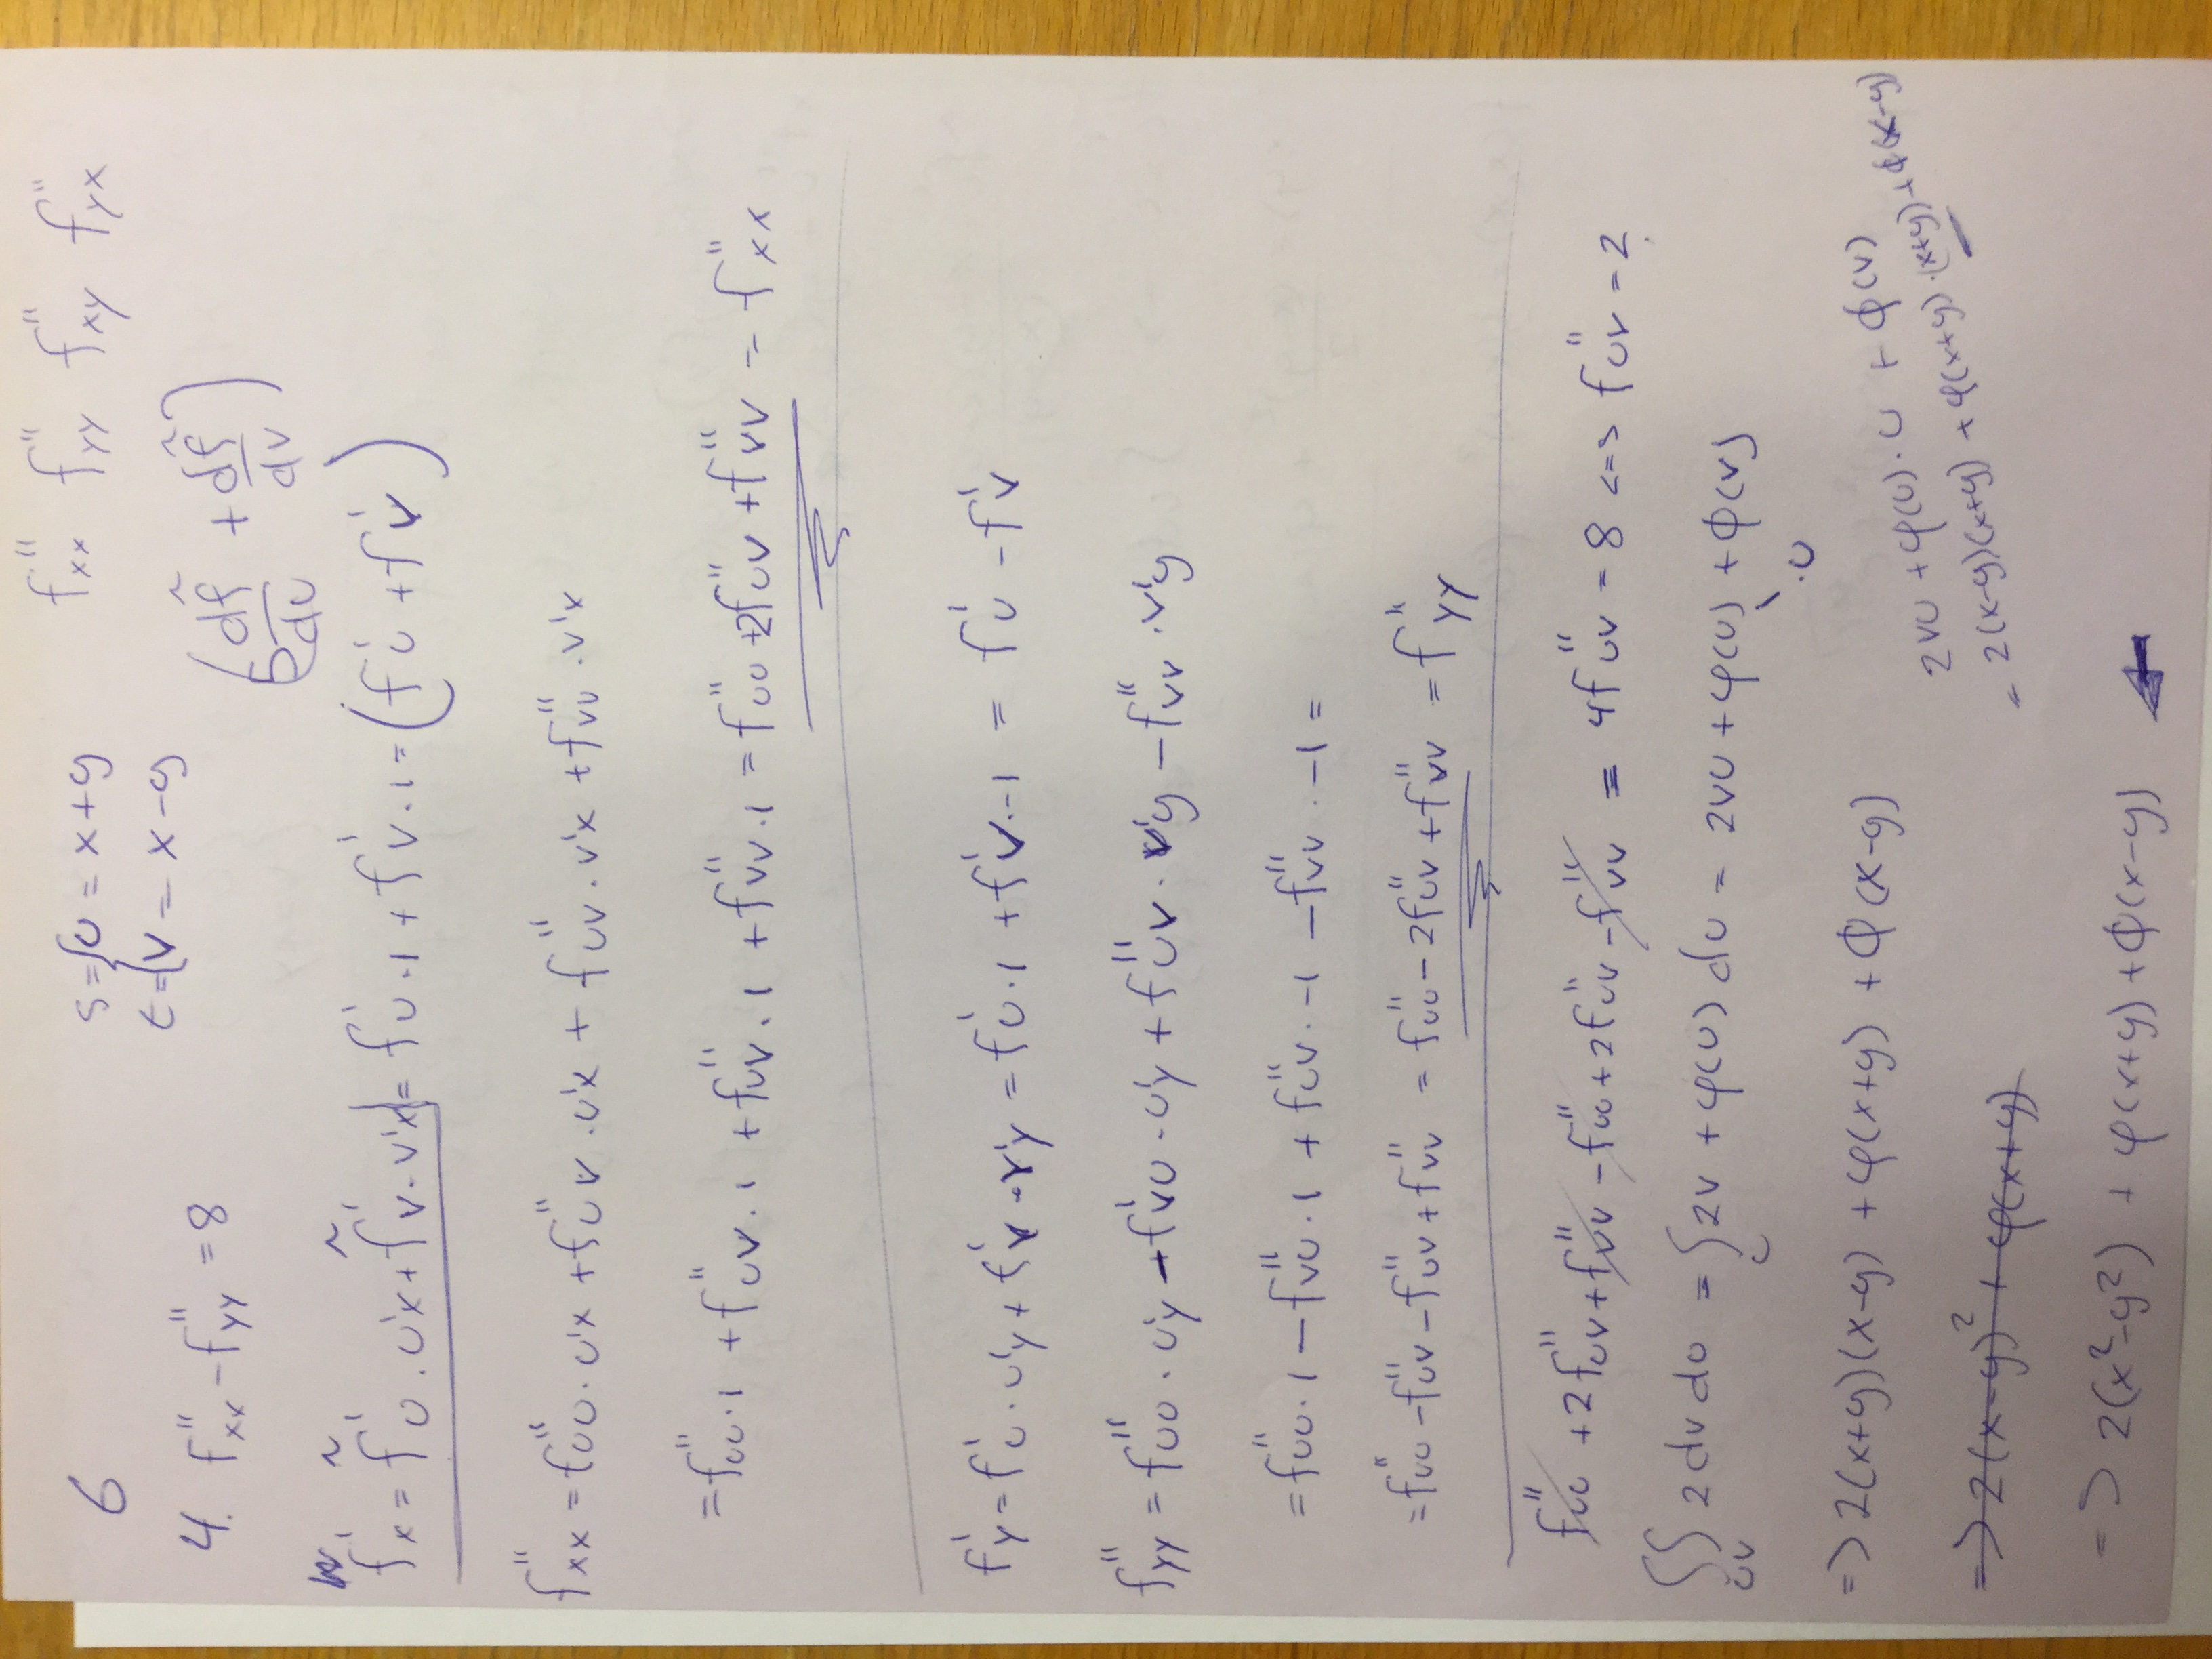 6
s = { u = x+y
t = { v = x-y
f''xx f''yy f''xy f''yx
4. f''xx - f''yy = 8
(df̃/du + df̃/dv)
f'x = f̃'u · u'x + f̃'v · v'x = f'u · 1 + f'v · 1 = (f'u + f'v)
f''xx = f''uu · u'x + f''uv · u'x + f''uv · v'x + f''vv · v'x
= f''uu · 1 + f''uv · 1 + f''uv · 1 + f''vv · 1 = f''uu + 2f''uv + f''vv = f''xx
f'y = f'u · u'y + f'v · v'y = f'u · 1 + f'v · -1 = f'u - f'v
f''yy = f''uu · u'y - f'vu · u'y + f''uv · v'y - f''vv · v'y
= f''uu · 1 - f''vu · 1 + f''uv · -1 - f''vv · -1 =
= f''uu - f''uv - f''uv + f''vv = f''uu - 2f''uv + f''vv = f''yy
f''uu + 2f''uv + f''vv - f''uu + 2f''uv - f''vv = 4f''uv = 8 <=> f''uv = 2
∫∫uv 2 dv du = ∫u 2v + φ(u) du = 2vu + φ(u) + ϕ(v)
· u
=> 2(x+y)(x-y) + φ(x+y) + ϕ(x-y)
2vu + φ(u) · u + ϕ(v)
= 2(x-y)(x+y) + φ(x+y) · (x+y) + ϕ(x-y)
=> 2(x-y)² + φ(x+y)
=> 2(x²-y²) + φ(x+y) + ϕ(x-y)